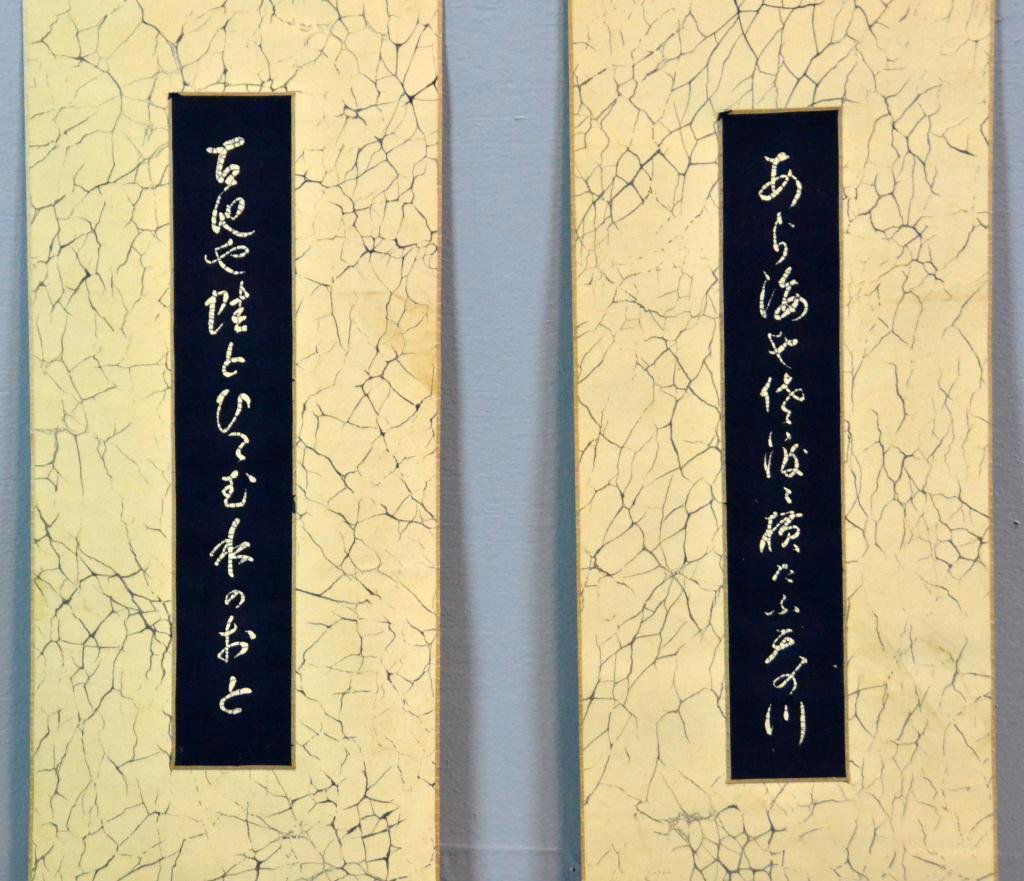 あら海や佐渡に横たふ天の川
古池や蛙とひこむ水のおと